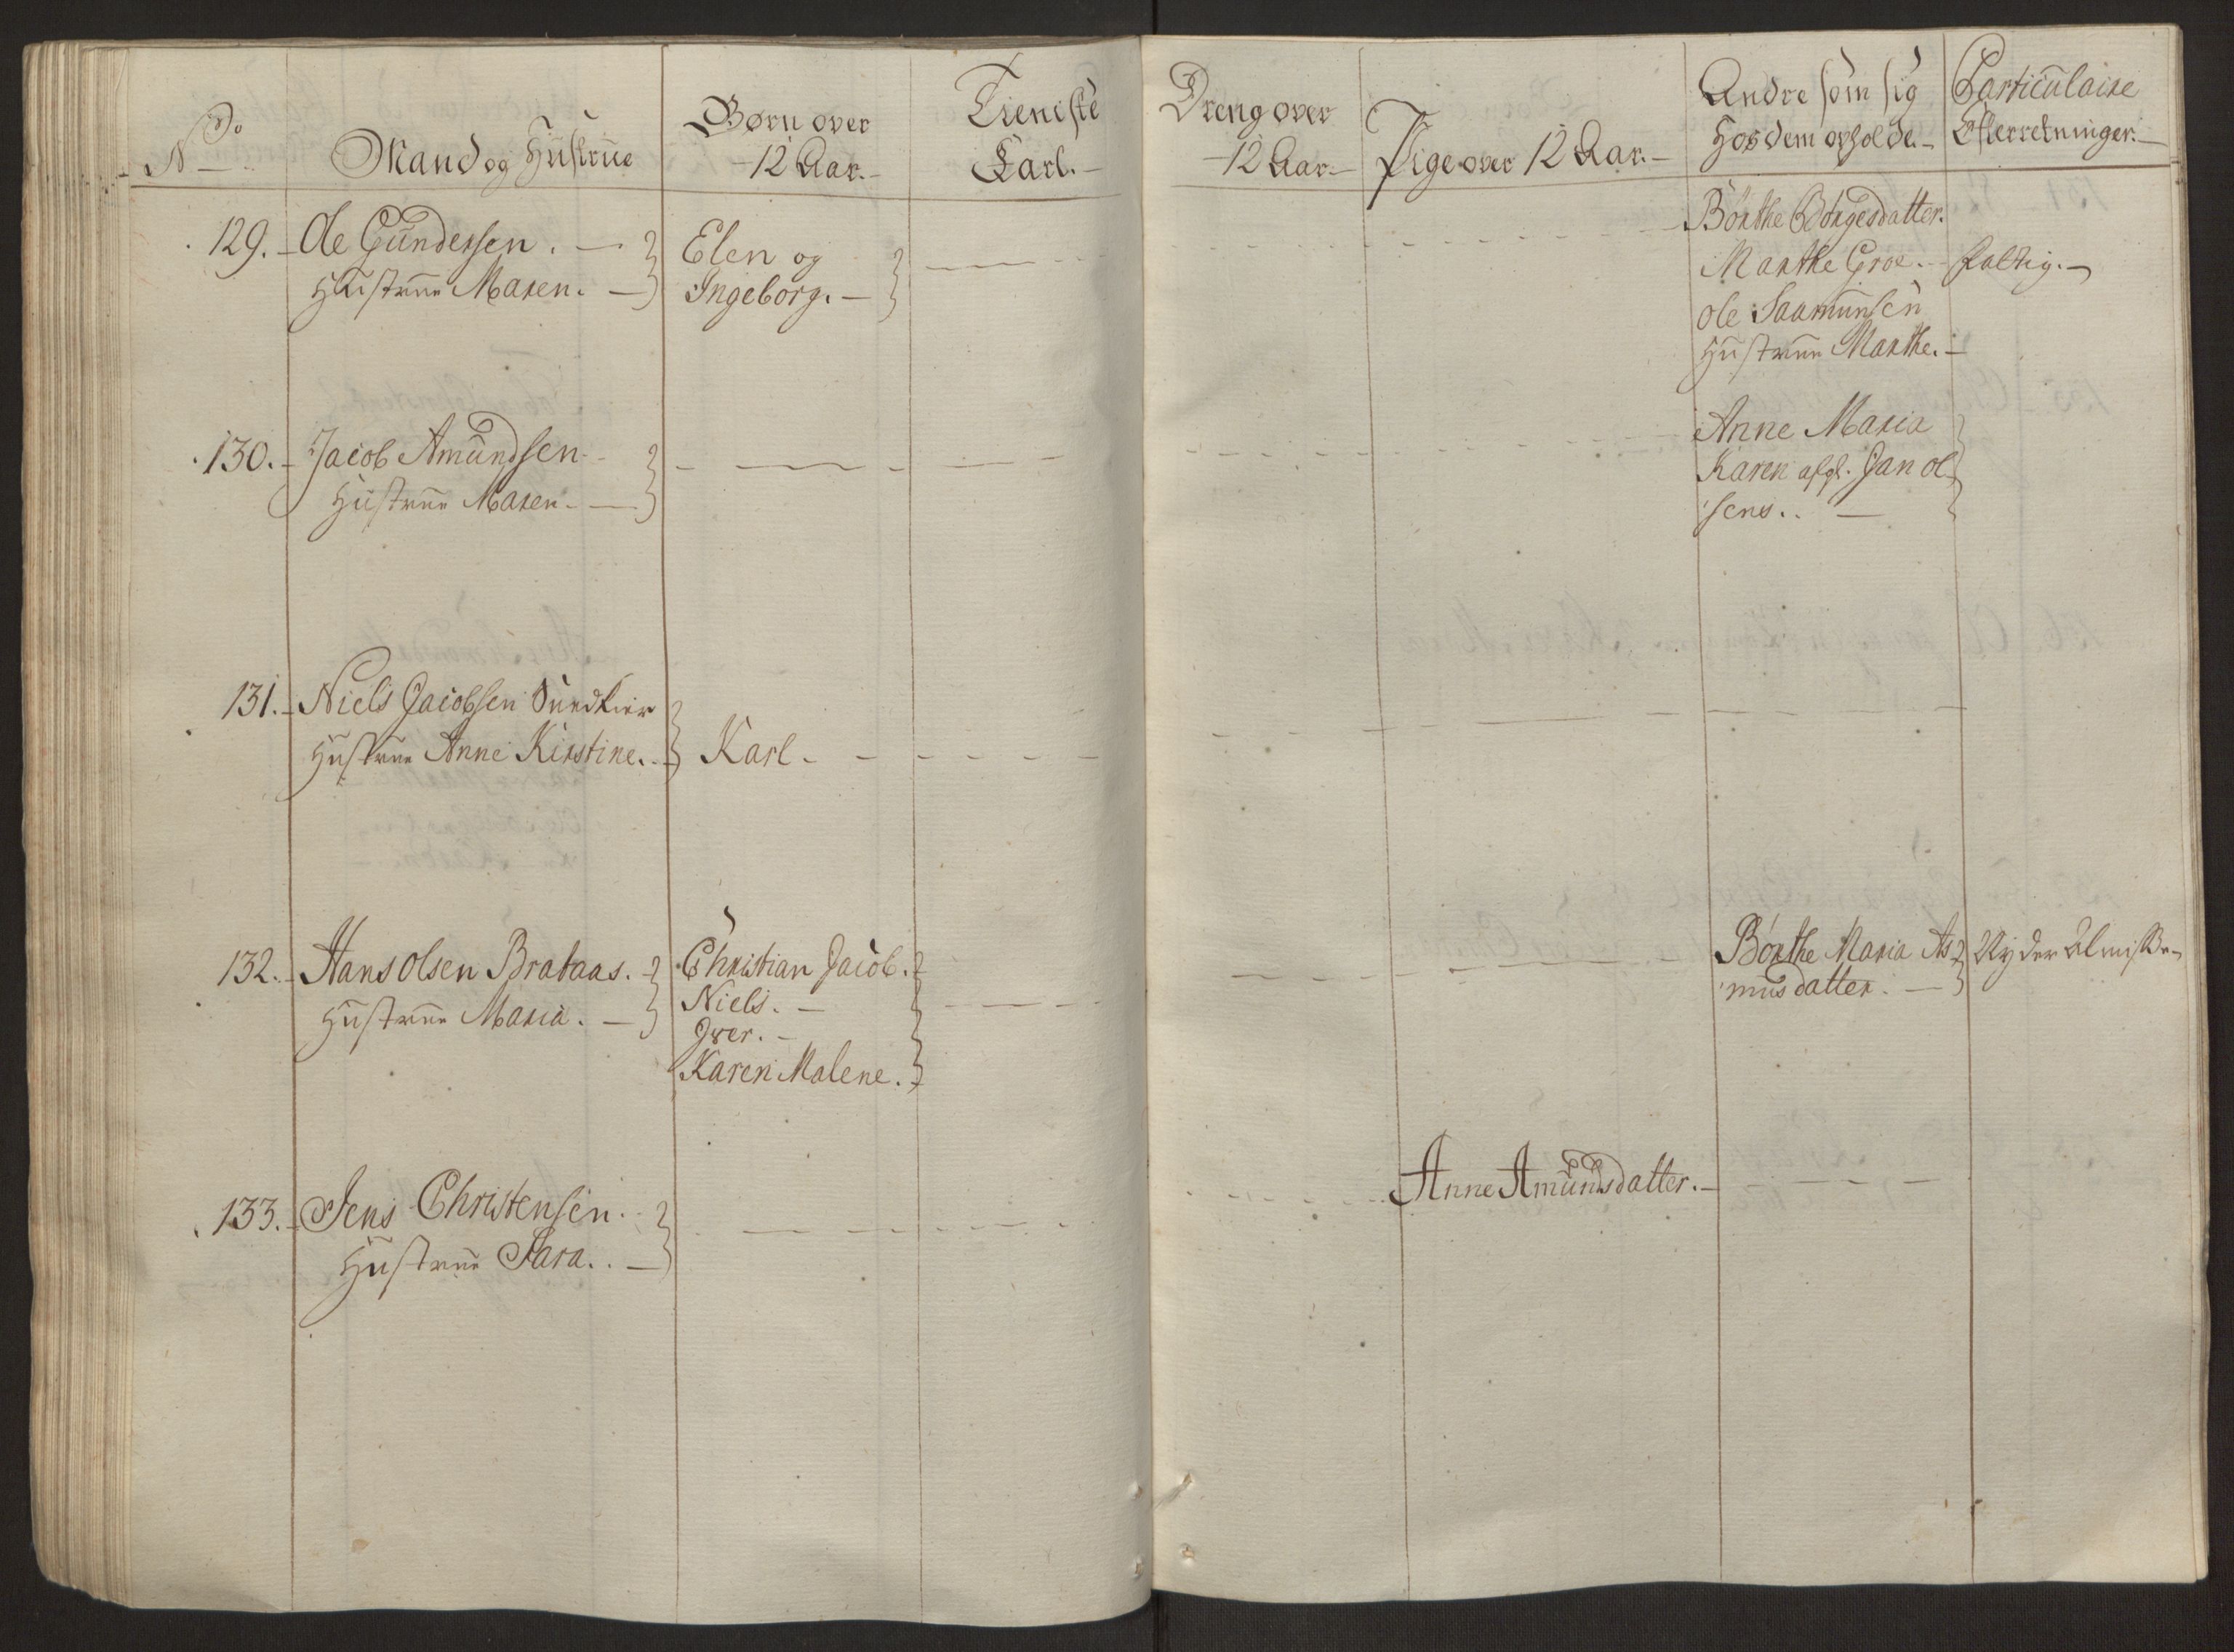 No
Mand og Hustrue
Børn over
12 Aar.
Tieniste
Karl.
Dreng over
12 Aar
Pige over 12 Aar.
Andre som sig
hos dem opholde.
Particulaire
Efterretninger.
129. Ole Gundersen.
Hustrue Maren.
Elen og
Ingeborg.
Börthe Börgesdatter.
Marthe Groe. fattig.
Ole Saamunsen
Hustrue Marthe.
130. Jacob Amundsen
Hustrue Maren.
Anne Maria
Karen afgl. Jan Ol
sens.
131. Niels Jacobsen Sundkier
Hustrue Anne Kirstine.
Karl.
132. Hans Olsen Brataas.
Hustrue Maria.
Christian Jacob.
Niels.
Iver.
Karen Malene.
Börthe Maria As
musdatter.
Nyder Almisse
133. Jens Christensen.
Hustrue Sara.
Anne Amundsdatter.